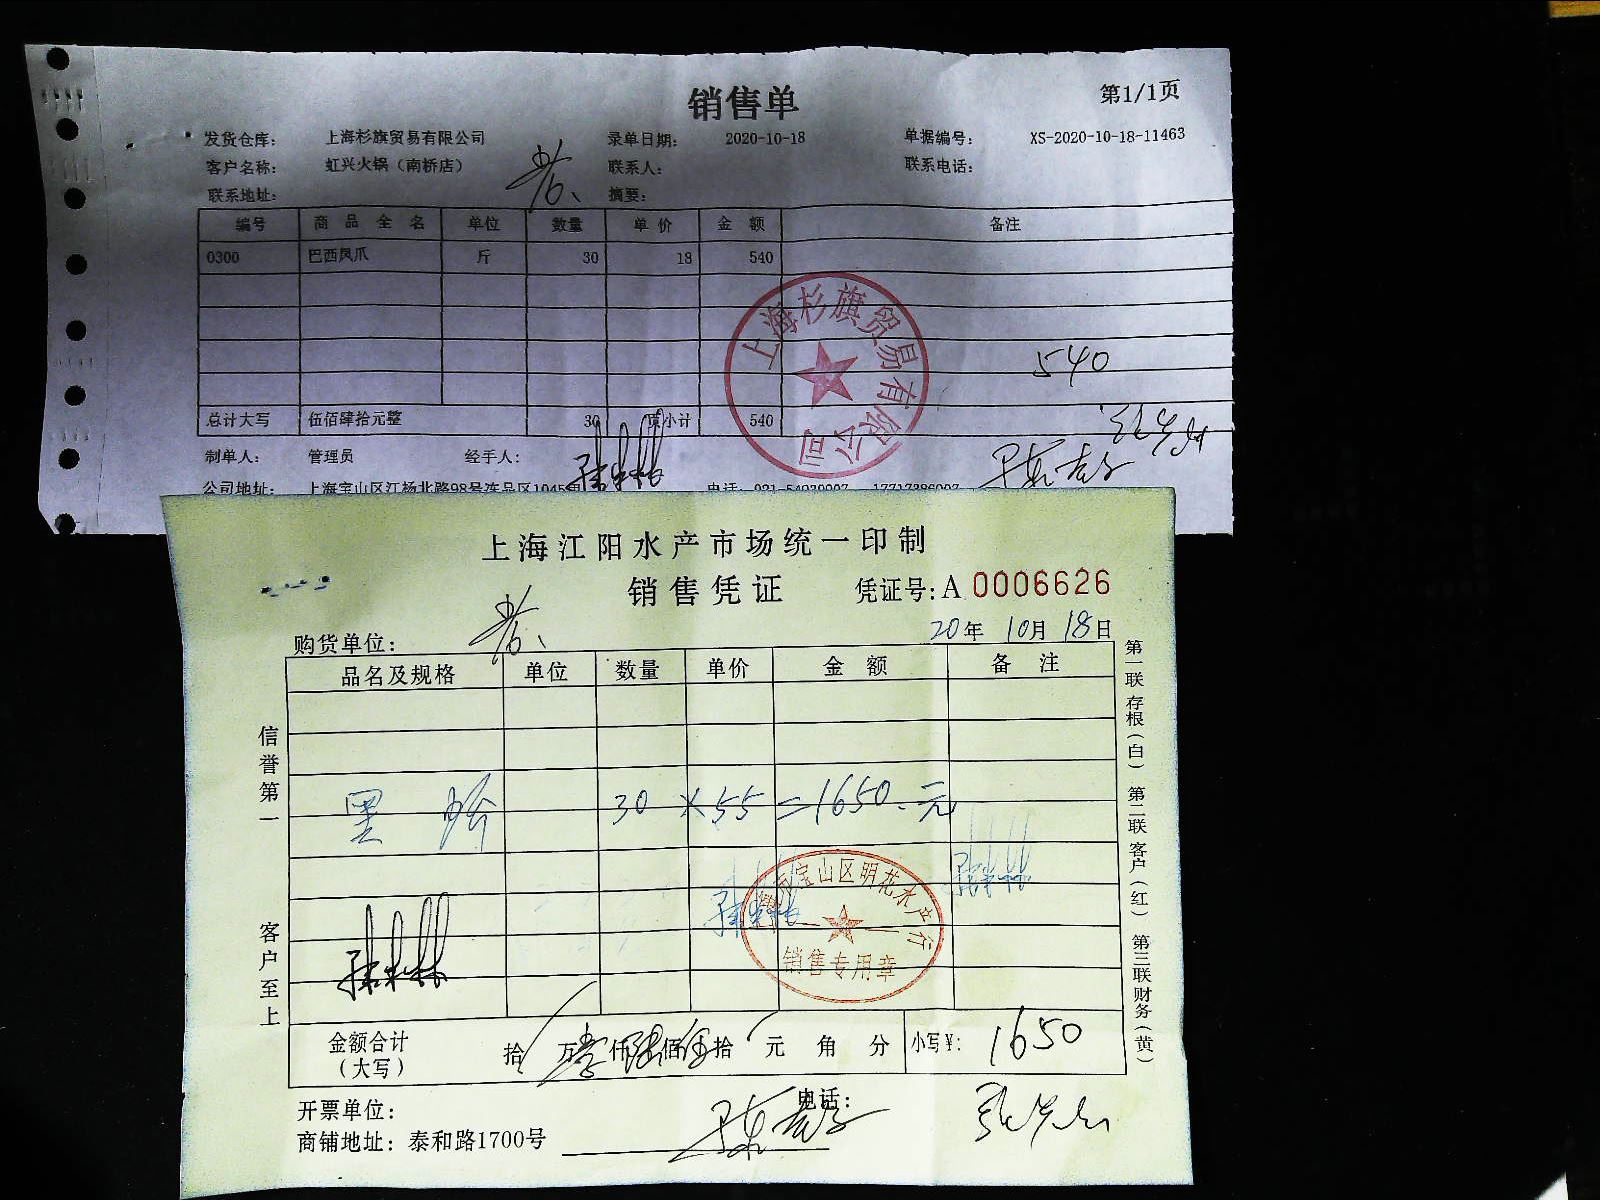 销售单
第1/1页
发货仓库： 上海杉旗贸易有限公司 录单日期： 2020-10-18 单据编号： XS-2020-10-18-11463
客户名称： 虹兴火锅（南桥店） 联系人： 联系电话：
联系地址： 摘要：
编号 商品全名 单位 数量 单价 金额 备注
0300 巴西凤爪 斤 30 18 540
上海杉旗贸易有限公司
540
总计大写 伍佰肆拾元整 30 页小计 540
制单人： 管理员 经手人：
公司地址： 上海宝山区江杨北路98号冻品区1045 电话：
上海江阳水产市场统一印制
销售凭证 凭证号：A 0006626
20年 10月 18日
购货单位：
品名及规格 单位 数量 单价 金额 备注
30 × 55 = 1650.元
宝山区明花水产行
销售专用章
金额合计（大写） 拾 万 仟 佰 拾 元 角 分 小写¥: 1650
开票单位： 电话：
商铺地址：泰和路1700号
信誉第一
客户至上
第一联存根（白） 第二联客户（红） 第三联财务（黄）